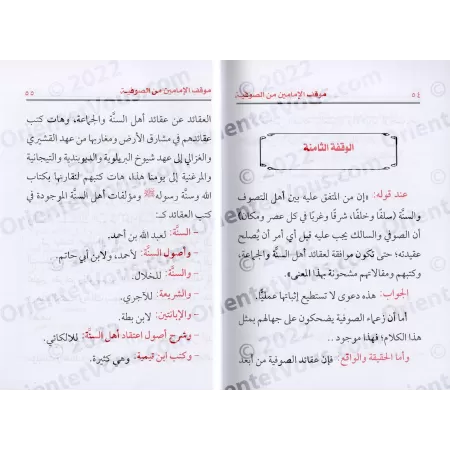 موقف الإمامين من الصوفية ٥٤
الوقفة الثامنة
عند قوله: «إن من المتفق عليه بين أهل التصوف
والسنَّة (سلفًا وخلفًا، شرقًا وغربًا في كل عصر ومكان)
أن الصوفي والسالك يجب عليه قبل أي أمر أن يُصلح
عقيدته؛ حتى تكون موافقة لعقائد أهل السنَّة والجماعة،
وكتبهم ومقالاتهم مشحونة بهذا المعنى».
الجواب: هذه دعوى لا تستطيع إثباتها عمليًّا.
أما أن زعماء الصوفية يضحكون على جهالهم بمثل
هذا الكلام؛ فهذا موجود..
وأما الحقيقة والواقع: فإن عقائد الصوفية من أبعد
موقف الإمامين من الصوفية ٥٥
العقائد عن عقائد أهل السنَّة والجماعة، وهات كتب
عقائدهم في مشارق الأرض ومغاربها من عهد القشيري
والغزالي إلى عهد شيوخ البريلوية والديوبندية والتيجانية
والمرغنية إلى يومنا هذا، هات كتبهم لنقارنها بكتاب
الله وسنَّة رسوله ﷺ ومؤلفات أهل السنَّة الموجودة في
كتب العقائد كـ:
- السنَّة: لعبد الله بن أحمد.
- وأصول السنَّة: لأحمد، ولابن أبي حاتم.
- والسنَّة: للخلال.
- والشريعة: للآجري.
- والإبانتين: لابن بطة.
- وشرح أصول اعتقاد أهل السنَّة: لللالكائي.
- وكتب ابن تيمية: وهي كثيرة.
OrientetVous.com © 2022